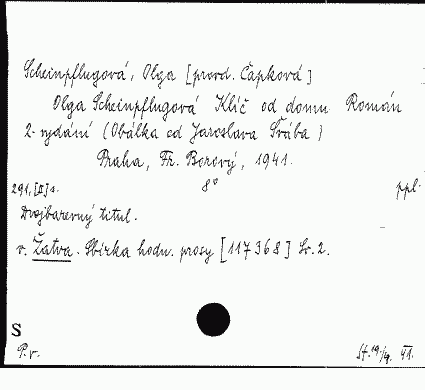 Scheinpflugová, Olga [provd. Čapková]
Olga Scheinpflugová Klíč od domu Román
2. vydání (Obálka od Jaroslava Švába)
Praha, Fr. Borový, 1941.
291, [II] s. 8° ppl.
Dvojbarevný titul.
v. Žatva. Sbírka hodn. prosy [117368] Sv. 2.
S
P.v. St. 19/9. 41.